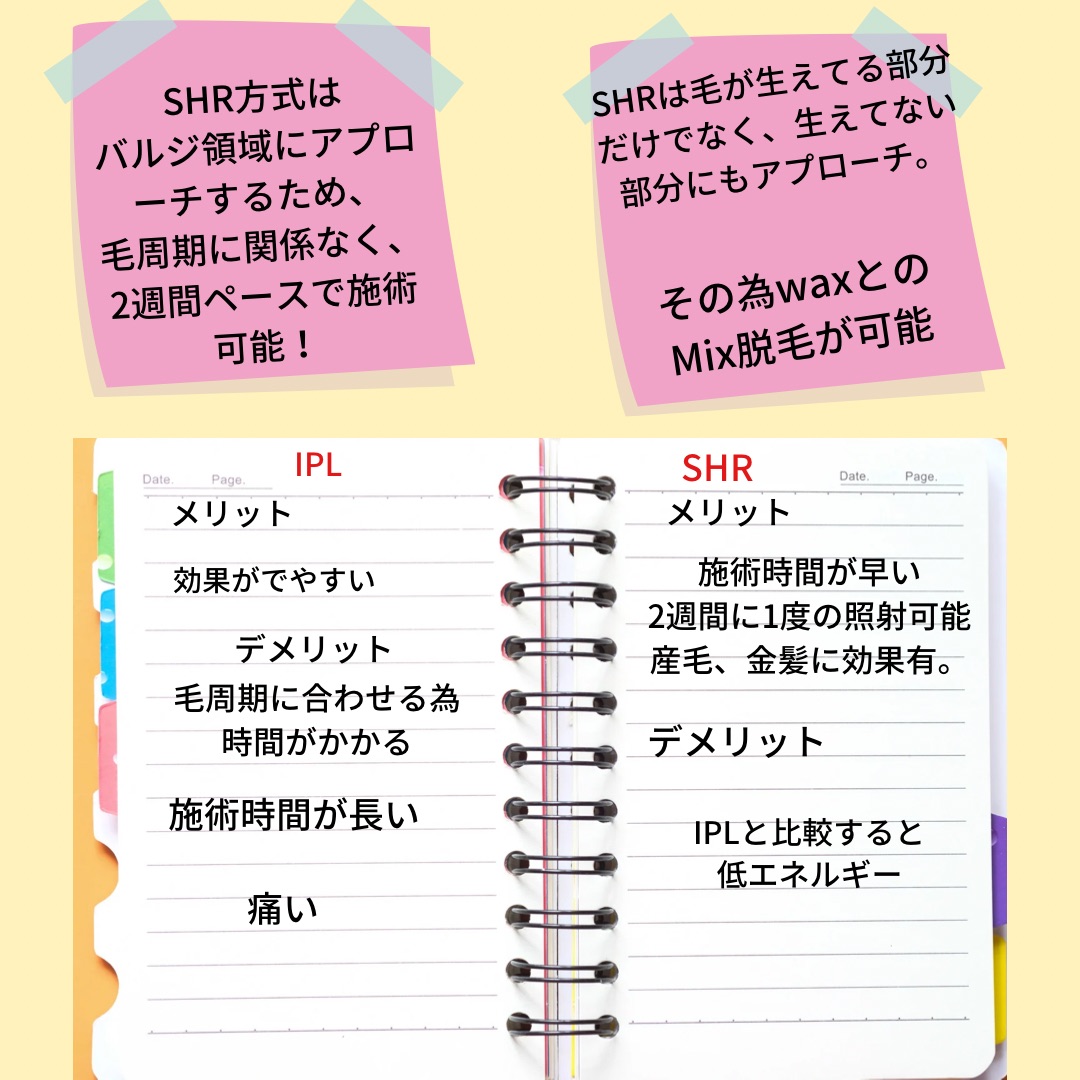 SHR方式は
バルジ領域にアプロ
ーチするため、
毛周期に関係なく、
2週間ペースで施術
可能！
SHRは毛が生えてる部分
だけでなく、生えてない
部分にもアプローチ。
その為waxとの
Mix脱毛が可能
IPL
Date. Page.
メリット
効果がでやすい
デメリット
毛周期に合わせる為
時間がかかる
施術時間が長い
痛い
SHR
Date. Page.
メリット
施術時間が早い
2週間に1度の照射可能
産毛、金髪に効果有。
デメリット
IPLと比較すると
低エネルギー